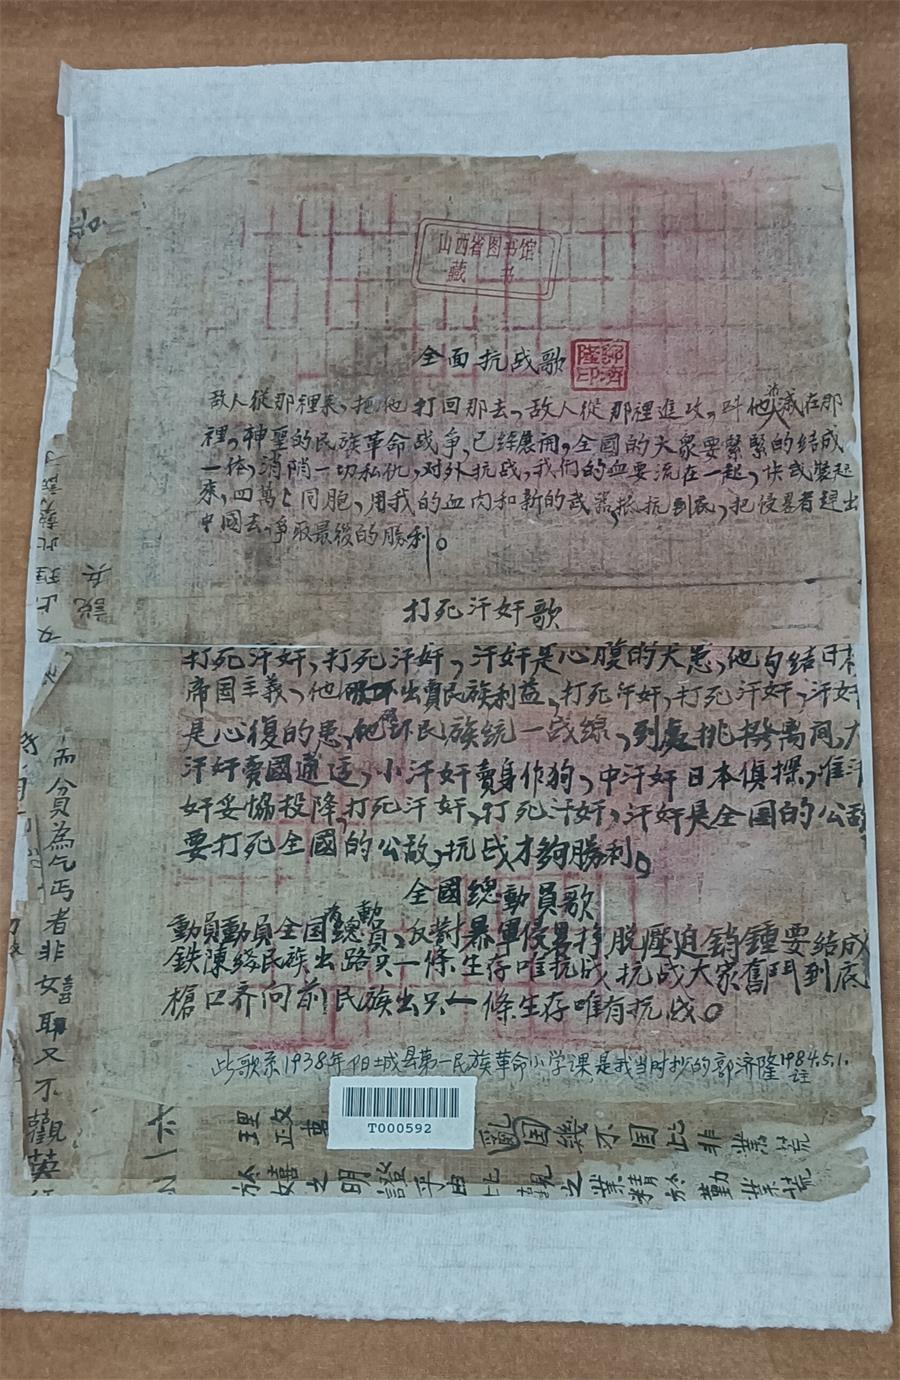 山西省图书馆
藏书
全面抗战歌
郭濟隆印
敌人從那裡来，把他打回那去，敌人從那裡進攻，叫他消滅在那
裡，神聖的民族革命战争，已经展開，全國的大衆要緊緊的结成
一体，消閉一切私仇，对外抗战，我们的血要流在一起，快武裝起
来，四萬万同胞，用我的血肉和新的武器，抵抗到底，把侵畧者趕出
中國去，争取最後的勝利。
打死汗奸歌
打死汗奸，打死汗奸，汗奸是心腹的大患，他勾结日本
帝国主義，他出賣民族利益，打死汗奸，打死汗奸，汗奸
是心復的患，他破坏民族统一战線，到處挑撥离间，大
汗奸賣國通逆，小汗奸賣身作狗，中汗奸日本偵探，准汗
奸妥協投降，打死汗奸，打死汗奸，汗奸是全國的公敌
要打死全國的公敌，抗战才夠勝利。
全國總動員歌
動員動員全国總動員，反對暴軍侵畧挣脱壓迫鎖鍾要结成
鉄陳綫民族出路只一條生存唯抗战抗战大家奮鬥到底
槍口齐向前民族出只一條生存唯有抗战。
此歌系1938年阳城县第一民族革命小学课是我当时抄的郭济隆1984.5.1.註
T000592
而貧為乞丐者非女嬉耶又不觀英
說兵
理政
亂国幾不国比非業荒
於嬉之明證乎由比觀之業精於勤業荒